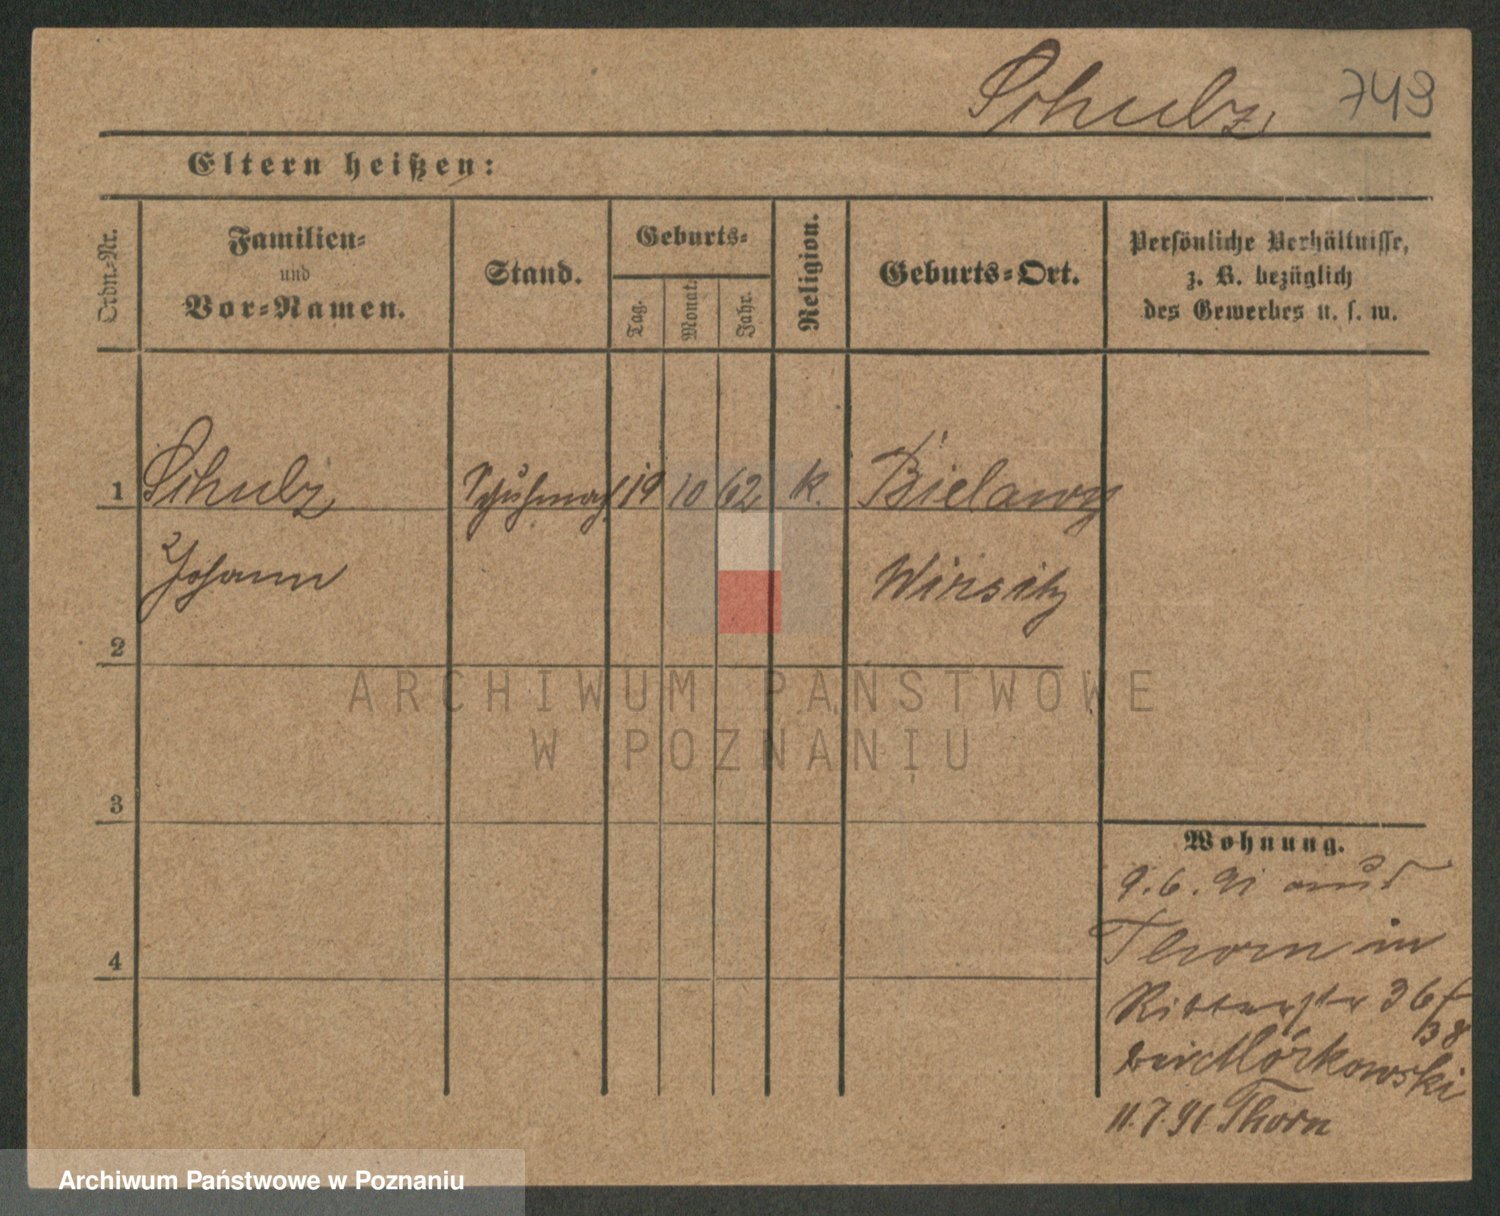 Schulz 749
Eltern heißen:
Ordn.-Nr.
Familien-
und
Vor-Namen.
Stand.
Geburts-
Tag.
Monat.
Jahr.
Religion.
Geburts-Ort.
Persönliche Verhältnisse,
z. B. bezüglich
des Gewerbes u. s. w.
1 Schulz Schuhmach 19 10 62 k. Bielawy
Johann Wirsitz
2
3
4
Wohnung.
9.6.91 aus
Thorn in
Ritterstr 36/
38
bei Mórkowski
11.7.91 Thorn
ARCHIWUM PAŃSTWOWE
W POZNANIU
Archiwum Państwowe w Poznaniu